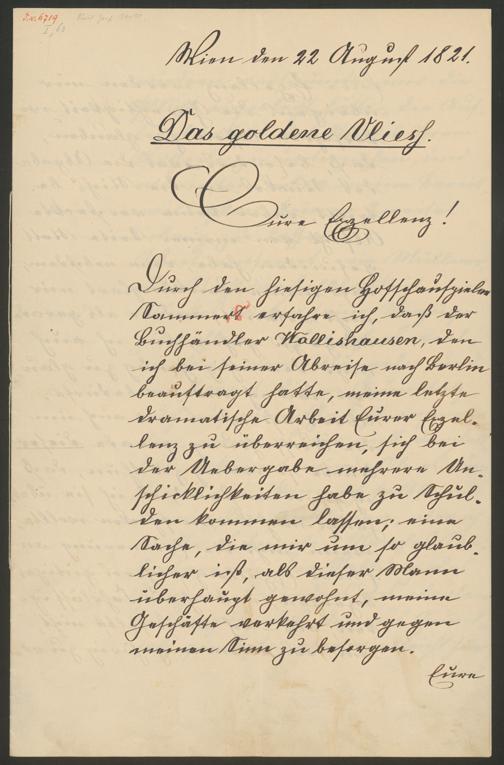 I.N. 6719
Wien den 22 August 1821.
Das goldene Vliesh.
Eure Exzellenz!
Durch den hiesigen Hofschauspieler
erfahre ich, daß der
Buchhändler Wallishausen, den
ich bei seiner Abreise nach Berlin
beauftragt hatte, meine letzte
dramatische Arbeit Eurer Exzel-
lenz zu überreichen, sich bei
der Uebergabe mehrere Un-
schicklichkeiten habe zu Schul-
den kommen lassen; eine
Sache, die mir um so glaub-
licher ist, als dieser Mann
überhaupt gewohnt, meine
Geschäfte verkehrt und gegen
meinen Sinn zu besorgen.
Eure